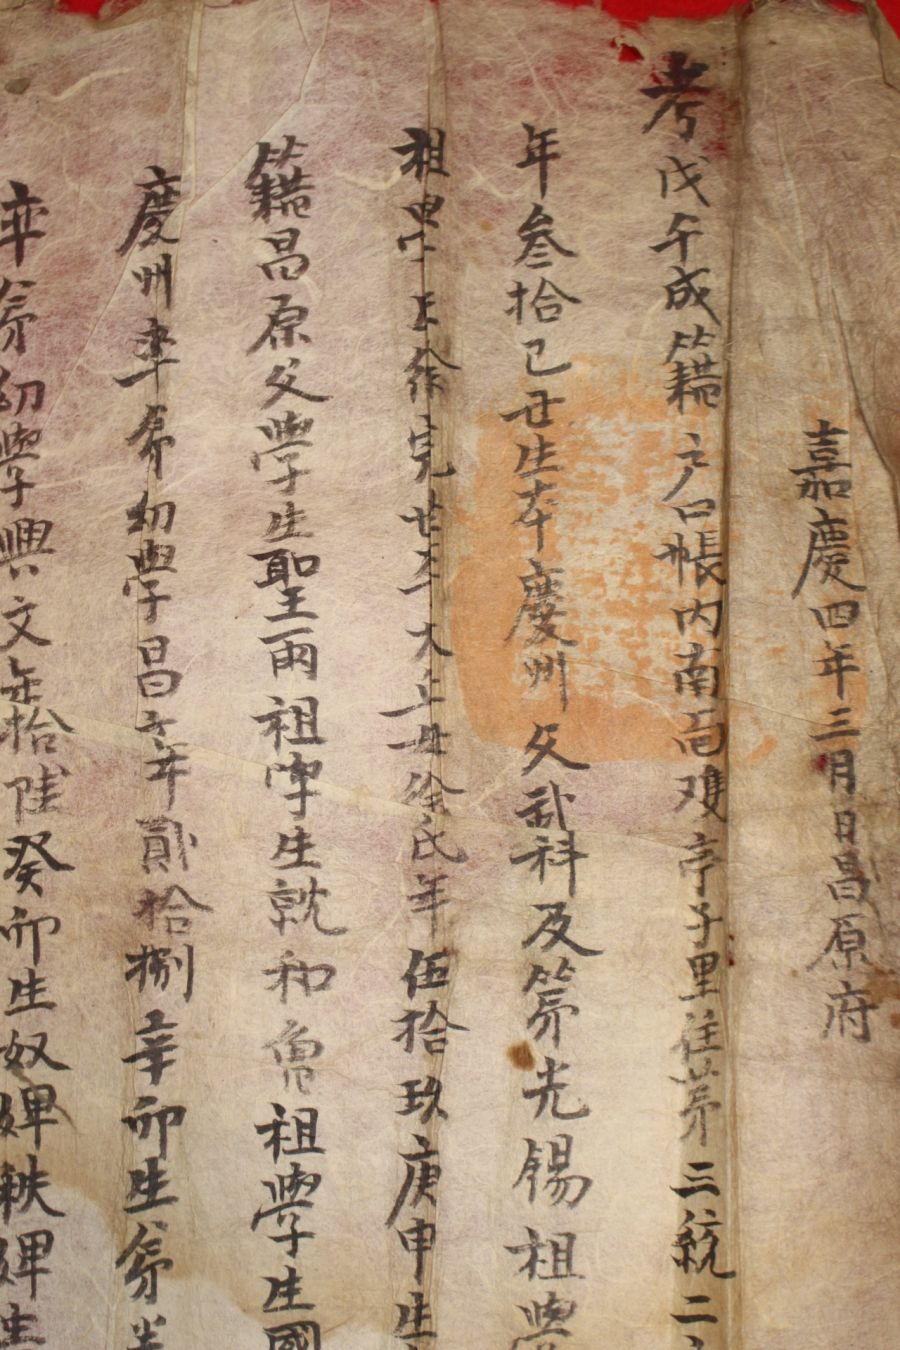 嘉慶四年三月日昌原府
考戊午成籍戶口帳內南面 亭子里 第三統二
年叁拾己丑生本慶州父武科及第光錫祖學
祖學生 完 母徐氏年伍拾玖庚申生
籍昌原父學生聖雨祖學生就和曾祖學生國
慶州率弟幼學昌文年貳拾捌辛卯生弟
率弟幼學興文年拾陸癸卯生奴婢秩婢生